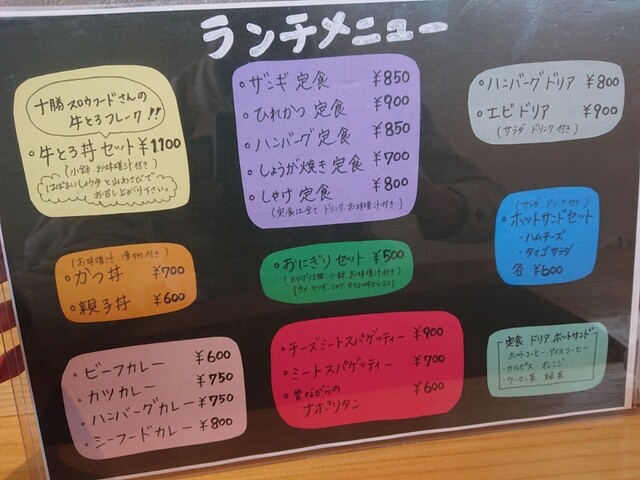 ランチメニュー
十勝スロウフードさんの
牛とろフレーク!!
• 牛とろ丼セット ¥1,100
(小鉢、お味噌汁付き)
お召し上がり下さい。
• ザンギ 定食 ¥850
• ひれかつ 定食 ¥900
• ハンバーグ 定食 ¥850
• しょうが焼き 定食 ¥700
• しゃけ 定食 ¥800
(定食は全て ドリンク、お味噌汁付き)
• ハンバーグドリア ¥800
• エビドリア ¥900
(サラダ、ドリンク付き)
(サラダ、ドリンク付き)
• ホットサンドセット
・ハムチーズ
・タマゴサラダ
各 ¥600
(お味噌汁、漬物付き)
• かつ丼 ¥700
• 親子丼 ¥600
• おにぎりセット ¥500
• ビーフカレー ¥600
• カツカレー ¥750
• ハンバーグカレー ¥750
• シーフードカレー ¥800
• チーズミートスパゲッティー ¥900
• ミートスパゲッティー ¥700
• 昔ながらの
ナポリタン ¥600
定食 ドリア ホットサンド
・ホットコーヒー・アイスコーヒー
・カルピス・オレンジ
・ウーロン茶 緑茶